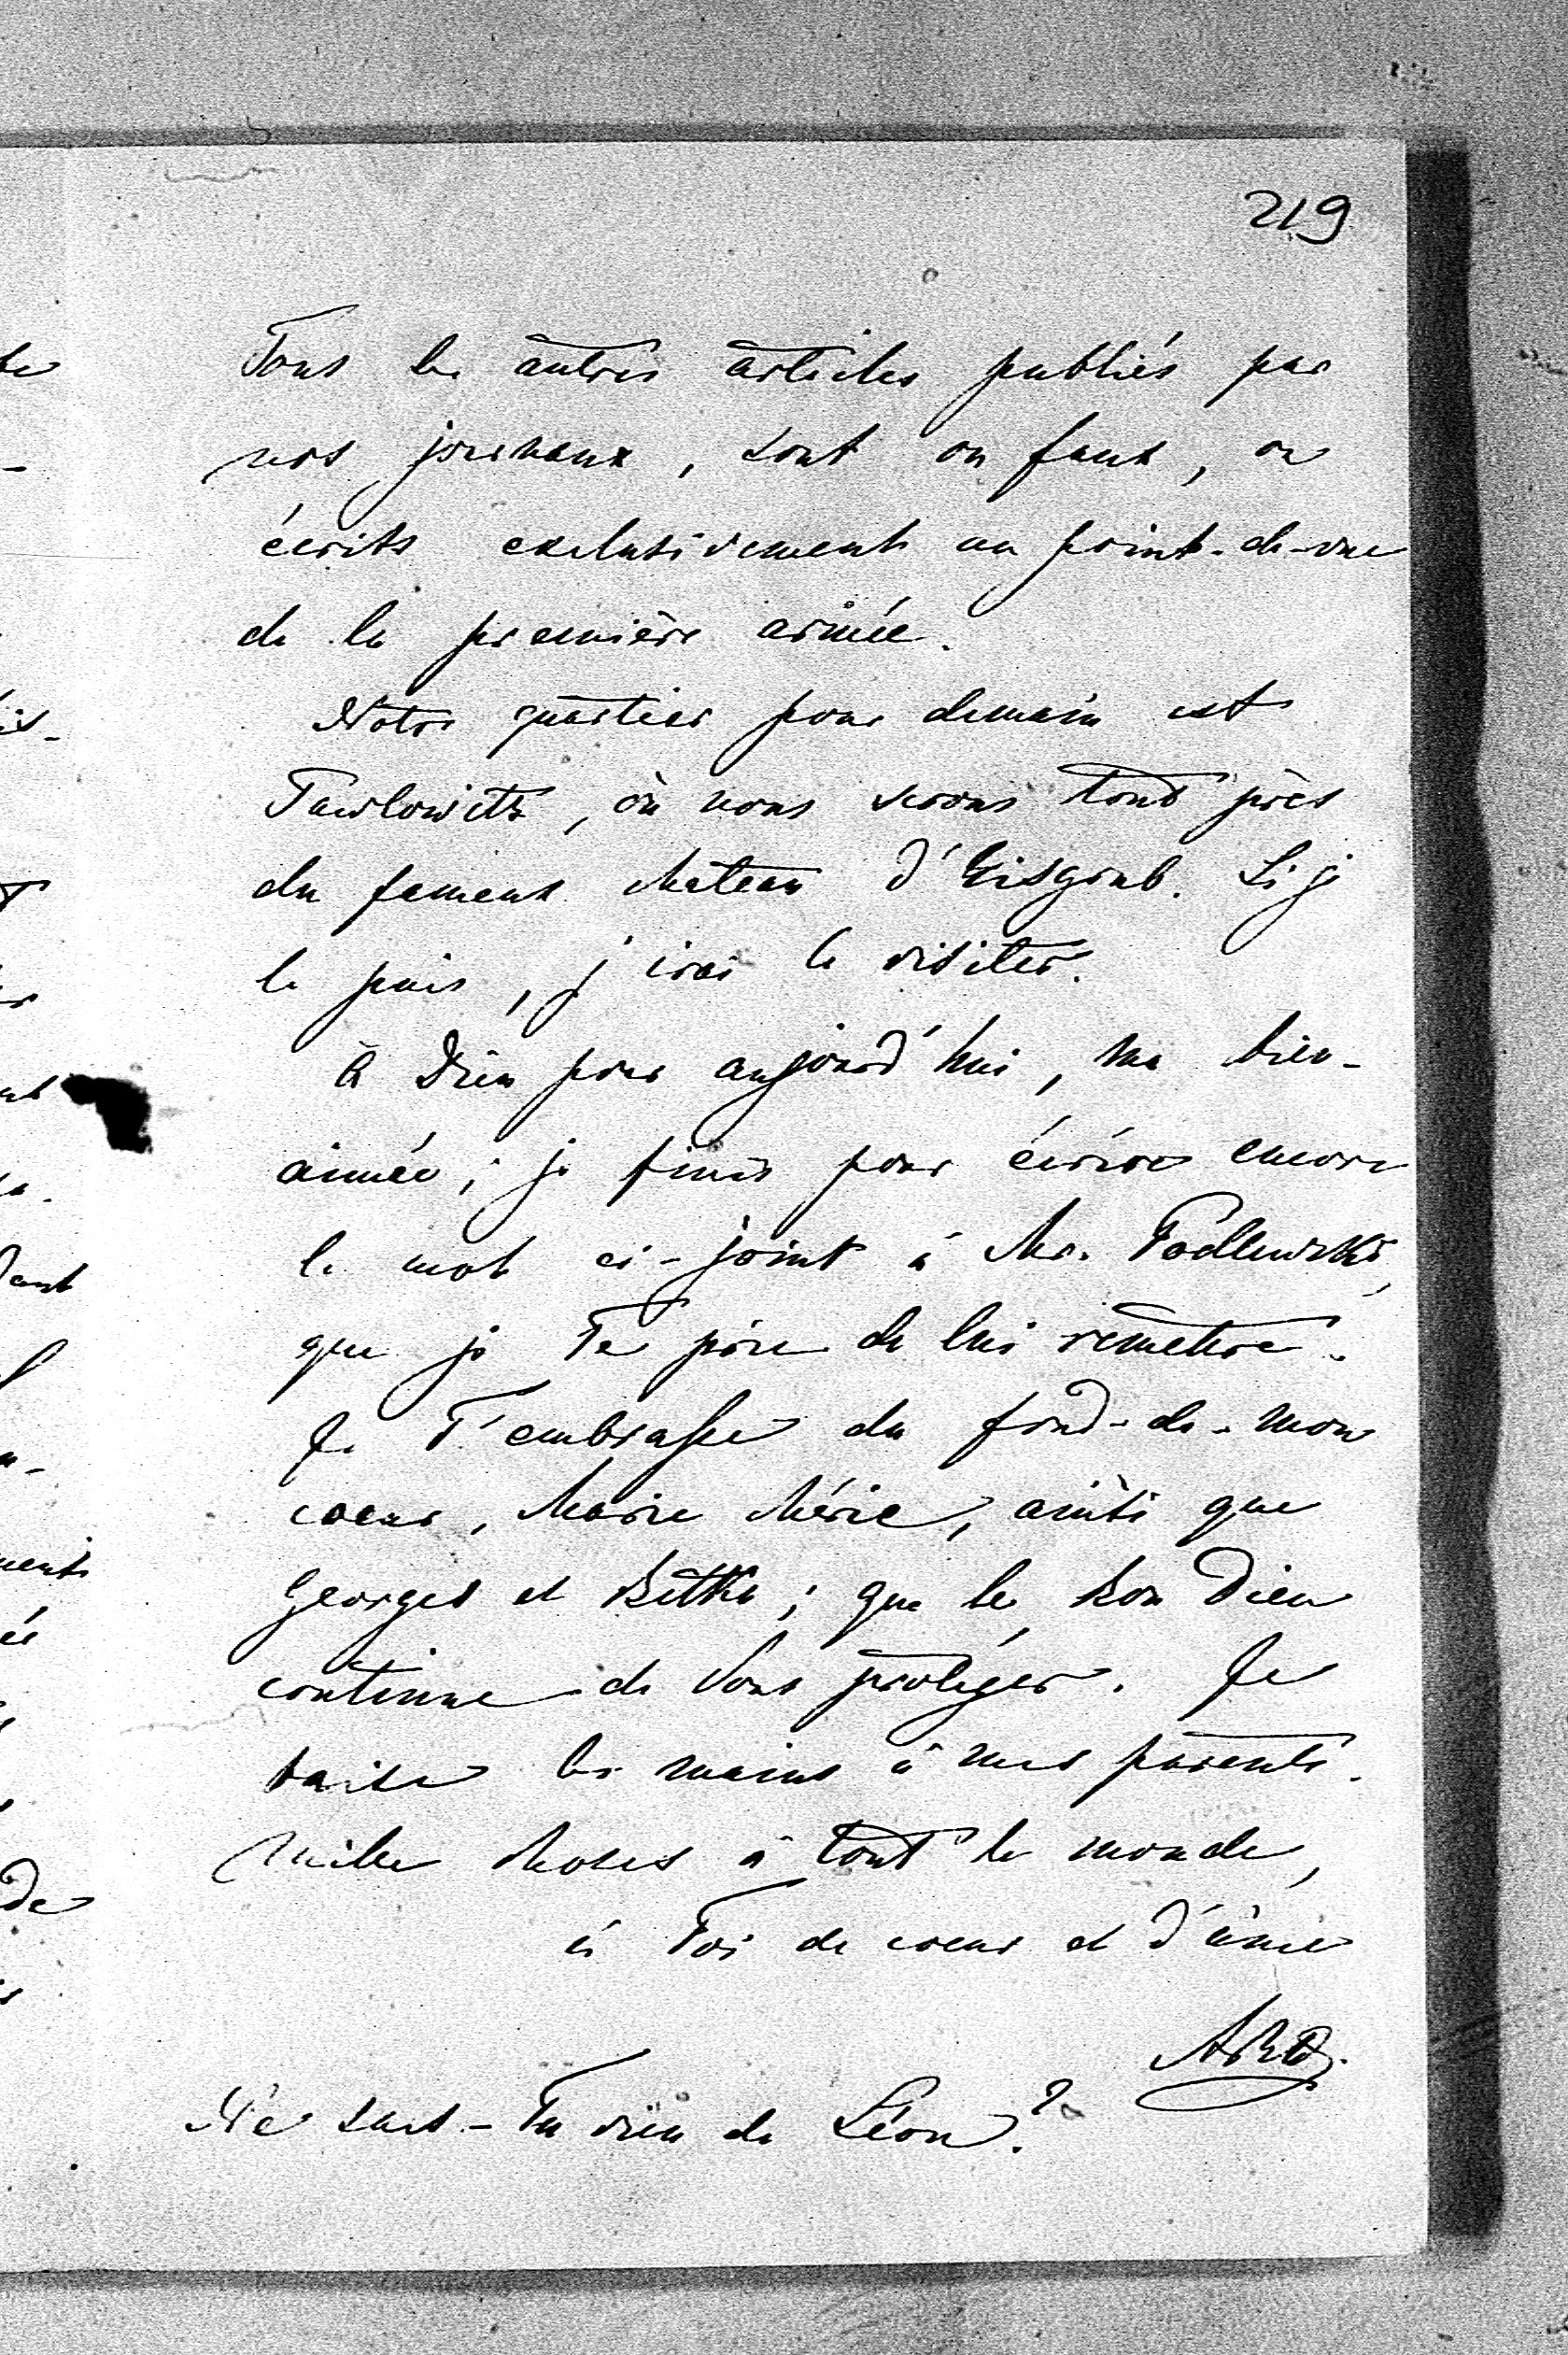 219
Tous les autres articles publiés par
nos journaux, sont ou faux, ou
écrits exclusivement au point-de-vue
de la première armée.
Notre quartier pour demain est
Pawlowitz, où nous serons tout près
du fameux chateau d'Eisgrub. Si je
le puis, j'irai le visiter.
à Dieu pour aujourd'hui, ma bien-
aimée; je finis pour écrire encore
le mot ci-joint à Mr. Podlewski,
que je Te prie de lui remettre.
Je T'embrasse du fond-de-mon
coeur, Marie chérie, ainsi que
Georges et Betka; que le bon Dieu
continue de Vous protéger. Je
baise les mains à mes parents.
Mille choses à tout le monde,
à Toi de coeur et d'âme
Ne sais-Tu rien de Léon?